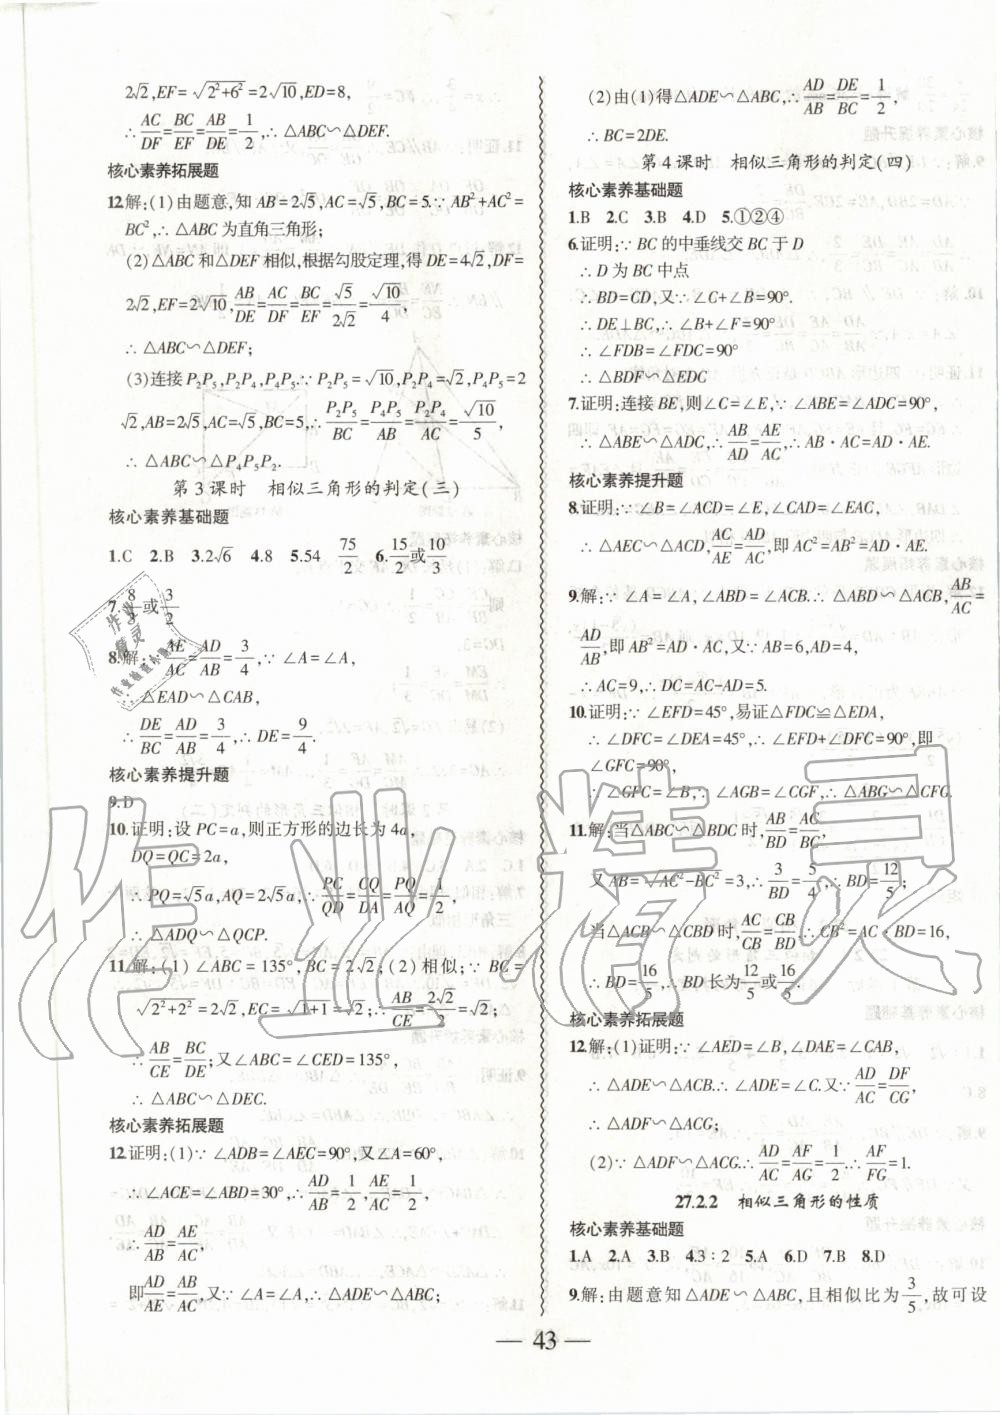 2√2,EF=√(2²+6²)=2√10,ED=8,
∴AC/DF=BC/EF=AB/DE=1/2,∴△ABC∽△DEF.
核心素养拓展题
12.解:(1)由题意,知AB=2√5,AC=√5,BC=5.∵AB²+AC²=
BC²,∴△ABC为直角三角形;
(2)△ABC和△DEF相似,根据勾股定理,得DE=4√2,DF=
2√2,EF=2√10,AB/DE=AC/DF=BC/EF=√5/2√2=√10/4,
∴△ABC∽△DEF;
(3)连接P₂P₅,P₂P₄,P₄P₅.∵P₂P₅=√10,P₂P₄=√2,P₄P₅=2
√2,AB=2√5,AC=√5,BC=5,∴P₂P₅/BC=P₄P₅/AB=P₂P₄/AC=√10/5,
∴△ABC∽△P₄P₅P₂.
第3课时 相似三角形的判定(三)
核心素养基础题
1.C 2.B 3.2√6 4.8 5.54 75/2 6.15/2或10/3
7.8/3或3/2
8.解:AE/AC=AD/AB=3/4,∵∠A=∠A,
∴△EAD∽△CAB,
∴DE/BC=AD/AB=3/4,∴DE=9/4.
核心素养提升题
9.D
10.证明:设PC=a,则正方形的边长为4a,
DQ=QC=2a,
∴PQ=√5a,AQ=2√5a,∴PC/QD=CQ/DA=PQ/AQ=1/2,
∴△ADQ∽△QCP.
11.解:(1)∠ABC=135°,BC=2√2;(2)相似;∵BC=
√(2²+2²)=2√2,EC=√(1+1)=√2;∴AB/CE=2√2/√2=2
∴AB/CE=BC/DE;又∠ABC=∠CED=135°,
∴△ABC∽△DEC.
核心素养拓展题
12.证明:(1)∵∠ADB=∠AEC=90°,又∠A=60°,
∴∠ACE=∠ABD=30°,∴AD/AB=1/2,AE/AC=1/2,
∴AD/AB=AE/AC,
即AD/AE=AB/AC,又∠A=∠A,∴△ADE∽△ABC;
(2)由(1)得△ADE∽△ABC,∴AD/AB=DE/BC=1/2,
∴BC=2DE.
第4课时 相似三角形的判定(四)
核心素养基础题
1.B 2.C 3.B 4.D 5.①②④
6.证明:∵BC的中垂线交BC于D
∴D为BC中点
∴BD=CD,又∵∠C+∠B=90°.
∴DE⊥BC,∴∠B+∠F=90°
∴∠FDB=∠FDC=90°
∴△BDF∽△EDC
7.证明:连接BE,则∠C=∠E,∵∠ABE=∠ADC=90°,
∴△ABE∽△ADC,∴AB/AD=AE/AC,∴AB·AC=AD·AE.
核心素养提升题
8.证明:∵∠B=∠ACD=∠E,∠CAD=∠EAC,
∴△AEC∽△ACD,AC/AD=AE/AC,即AC²=AB²=AD·AE.
9.解:∵∠A=∠A,∠ABD=∠ACB.∴△ABD∽△ACB,AB/AC=
AD/AB,即AB²=AD·AC,又∵AB=6,AD=4,
∴AC=9,∴DC=AC-AD=5.
10.证明:∵∠EFD=45°,易证△FDC≌△EDA,
∴∠DFC=∠DEA=45°,∴∠EFD+∠DFC=90°,即
∠GFC=90°,
∴∠GFC=∠B,∵∠AGB=∠CGF,∴△ABG∽△CFG.
11.解:当△ABC∽△BDC时,AB/BD=AC/BC,
又AB=√(AC²-BC²)=3,∴3/BD=5/4,∴BD=12/5;
当△ACB∽△CBD时,AC/CB=CB/BD.∴CB²=AC·BD=16,
∴BD=16/5,∴BD长为12/5或16/5.
核心素养拓展题
12.解:(1)证明:∵∠AED=∠B,∠DAE=∠CAB,
∴△ADE∽△ACB,∴∠ADE=∠C.又∵AD/AC=DF/CG,
∴△ADF∽△ACG;
(2)∵△ADF∽△ACG.∴AD/AC=AF/AG=1/2.∴AF/FG=1.
27.2.2 相似三角形的性质
核心素养基础题
1.A 2.A 3.B 4.3:2 5.A 6.D 7.B 8.D
9.解:由题意知△ADE∽△ABC,且相似比为3/5,故可设
— 43 —
作业精灵